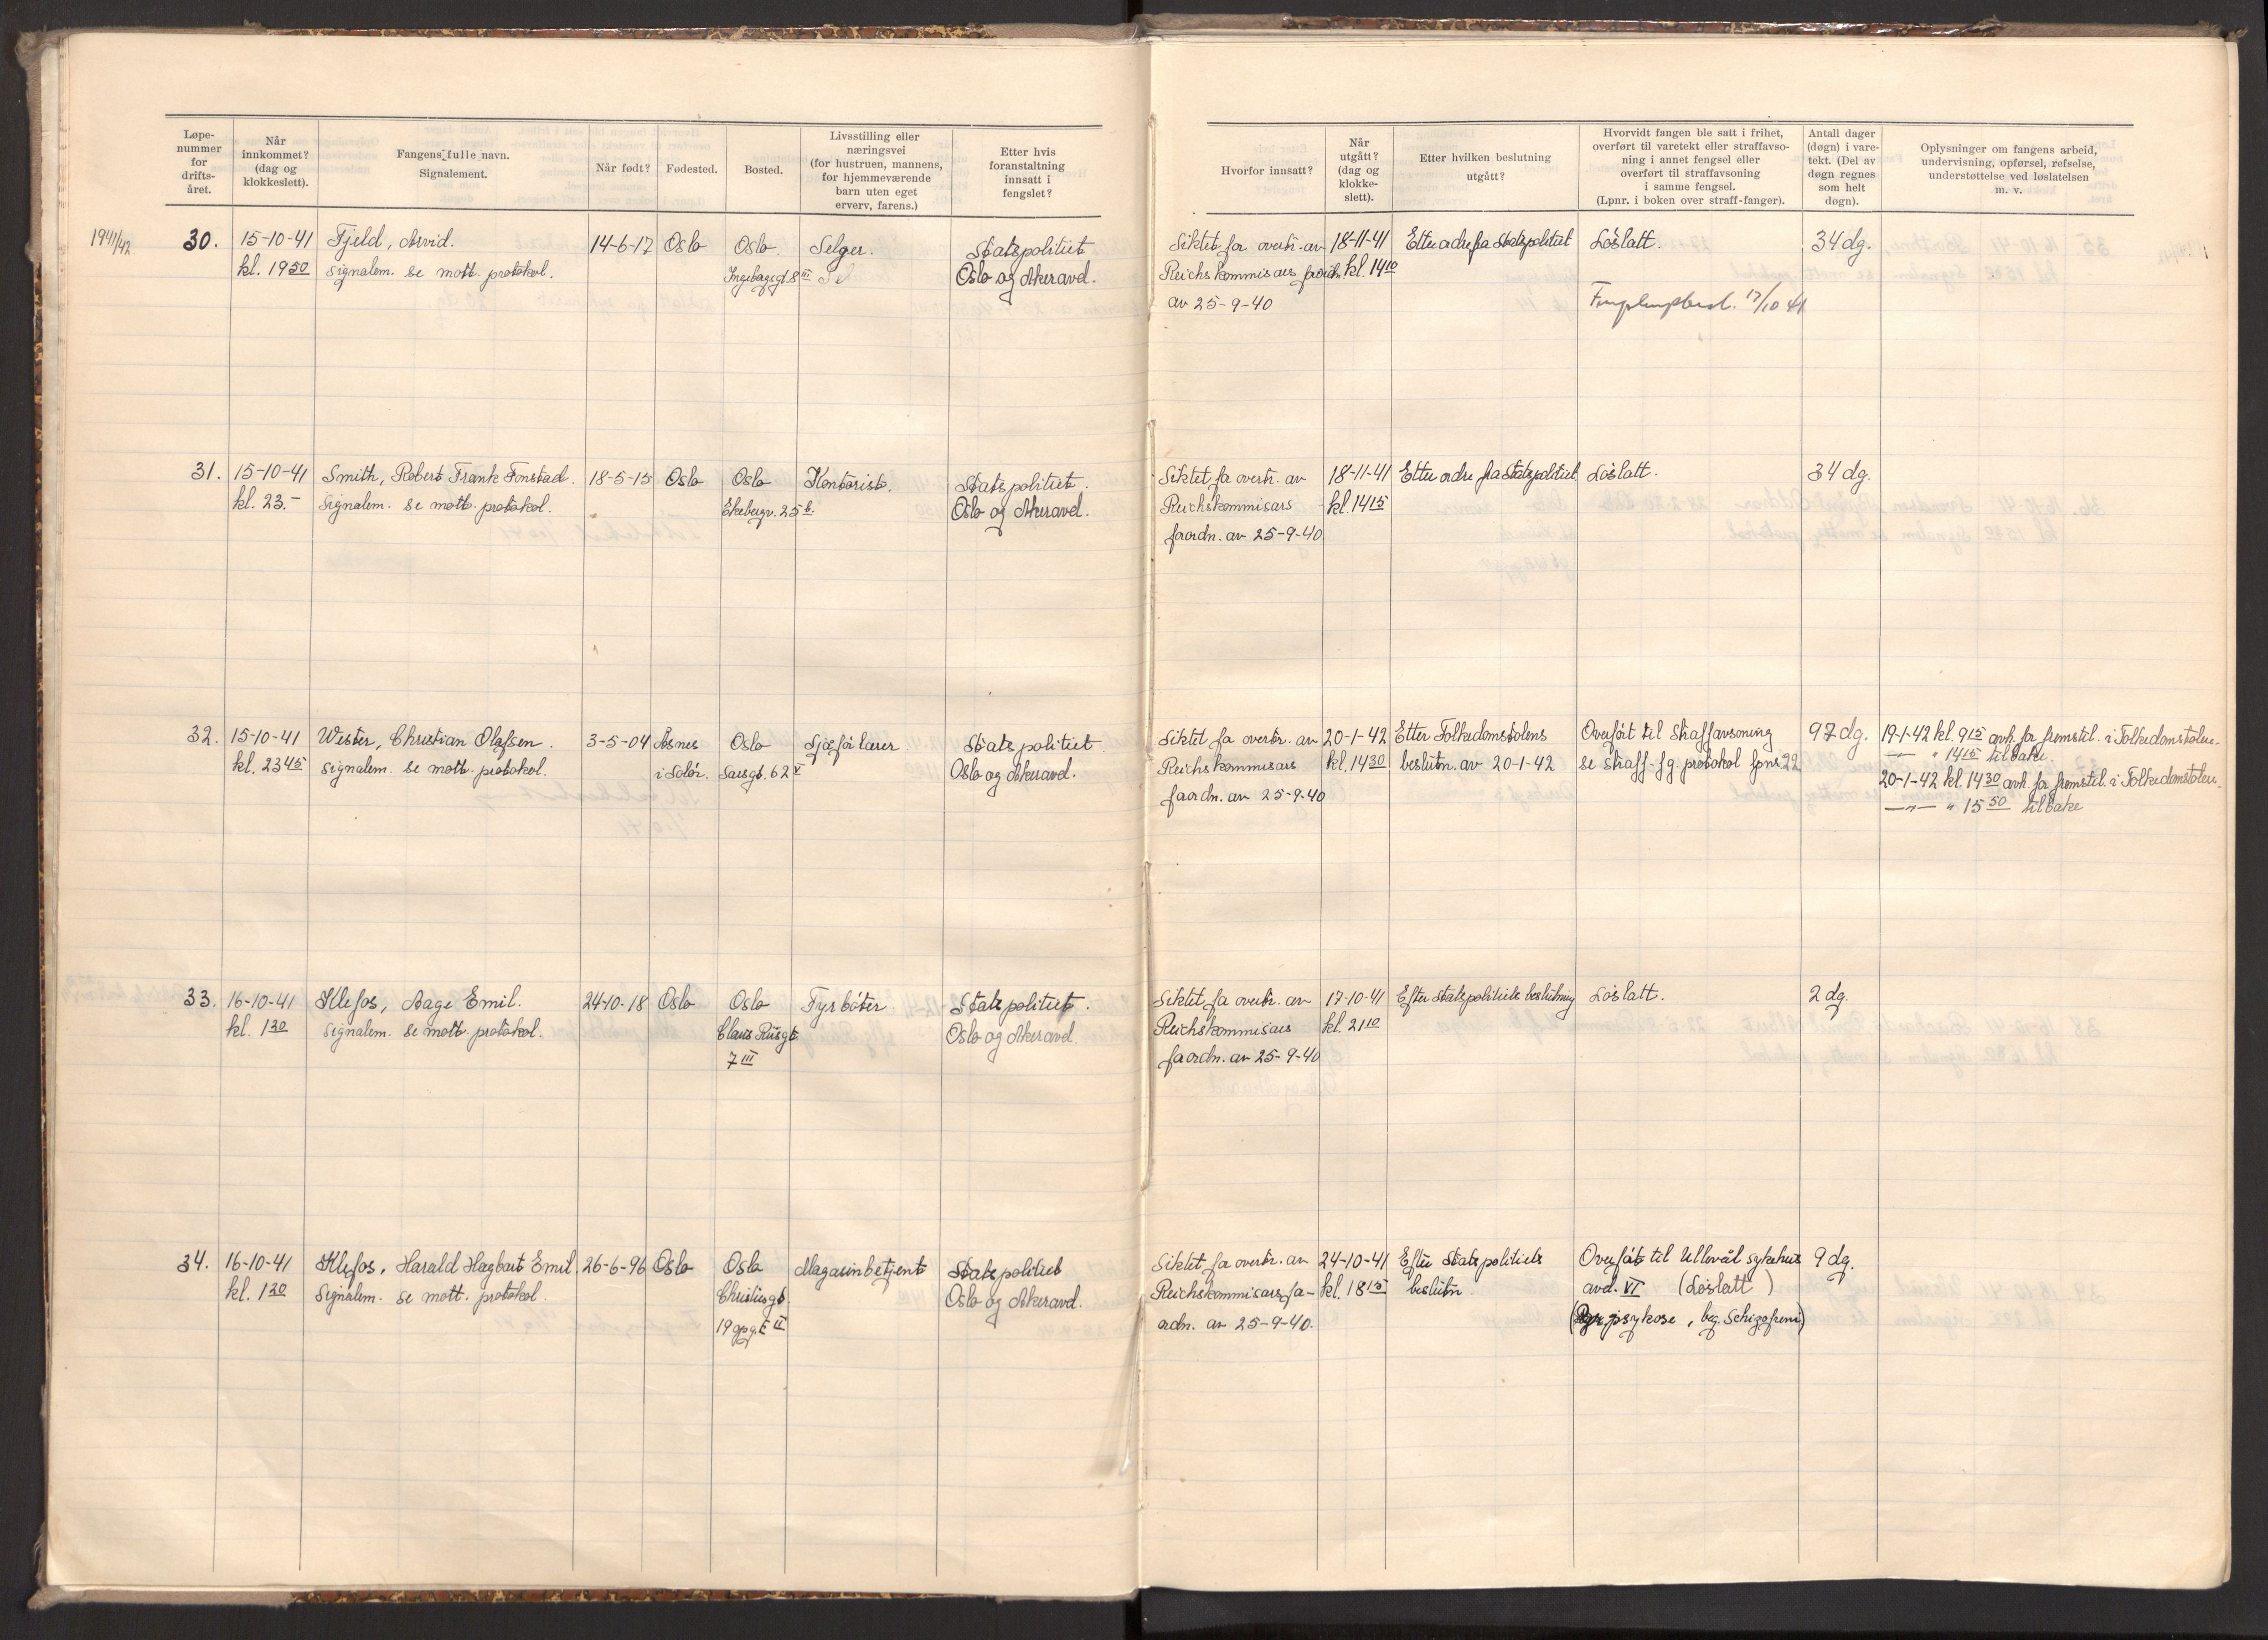 Løpe-
nummer
for
drifts-
året.
Når
innkommet?
(dag og
klokkeslett).
Fangens fulle navn.
Signalement.
Når født?
Fødested.
Bosted.
Livsstilling eller
næringsvei
(for hustruen, mannens,
for hjemmeværende
barn uten eget
erverv, farens.)
Etter hvis
foranstaltning
innsatt i
fengslet?
Hvorfor innsatt?
Når
utgått?
(dag og
klokke-
slett).
Etter hvilken beslutning
utgått?
Hvorvidt fangen ble satt i frihet,
overført til varetekt eller straffavso-
ning i annet fengsel eller
overført til straffavsoning
i samme fengsel.
(Lpnr. i boken over straff-fanger).
Antall dager
(døgn) i vare-
tekt. (Del av
døgn regnes
som helt
døgn).
Oplysninger om fangens arbeid,
undervisning, opførsel, refselse,
understøttelse ved løslatelsen
m. v.
1941/42
30.
15-10-41
kl. 19 50
Fjeld, Arvid.
Signalem. se mott. protokol.
14-6-17
Oslo
Oslo.
Ingeborgs gt. 8 III
Selger.
Sel
Statspolitiet
Oslo og Akeravd.
Siktet for overtr. av
Reichskommisars forordn.
av 25-9-40
18-11-41
kl. 14 10
Etter ordre fra Statspolitiet
Løslatt.
17/10 41
34 dg.
31.
15-10-41
kl. 23.-
Smith, Robert Frank Fonstad.
Signalem. se mott. protokol.
18-5-15
Oslo
Oslo
Ekebergv. 25 b.
Kontorist.
Statspolitiet.
Oslo og Akeravd.
Siktet for overtr. av
Reichskommisars
forordn. av 25-9-40
18-11-41
kl. 14 15
Etter ordre fra Statspolitiet
Løslatt.
34 dg.
32.
15-10-41
kl. 23 45
Wester, Christian Olafsen.
Signalem. se mott. protokol.
3-5-04
Åsnes
i Solør.
Oslo
Sarsgt. 62 V
Sjåførlærer.
Statspolitiet
Oslo og Akeravd.
Siktet for overtr. av
Reichskommisars
forordn. av 25-9-40
20-1-42
kl. 14 30
Etter Folkedomstolens
beslutn. av 20-1-42
Overført til Straffavsoning
se Straff-fg. protokol fpnr. 22
97 dg.
19-1-42 kl. 9 15 avh. for fremstil. i Folkedomstolen.
— " 14 15 tilbake.
20-1-42 kl. 14 30 avh. for fremstil. i Folkedomstolen.
—"— " 15 50 tilbake
33.
16-10-41
kl. 1 30
Klefos, Aage Emil.
Signalem. se mott. protokol.
24-10-18
Oslo
Oslo
Claus Riisgt.
7 III
Fyrbøter
Statspolitiet.
Oslo og Akeravd.
Siktet for overtr. av
Reichskommisars
forordn. av 25-9-40
17-10-41
kl. 21 10
Efter Statspolitiets beslutning
Løslatt.
2 dg.
34.
16-10-41
kl. 1 30
Klefos, Harald Hagbart Emil.
Signalem. se mott. protokol.
26-6-96
Oslo
Oslo
Christiesgt.
19 opg. E II
Magasinbetjent
Statspolitiet
Oslo og Akeravd.
Siktet for overtr. av
Reichskommisars for-
ordn. av 25-9-40.
24-10-41
kl. 18 15
Efter Statspolitiets
beslutn.
Overført til Ullevål sykehus
avd. VI (Løslatt)
psykose, beg. Schizofreni)
9 dg.